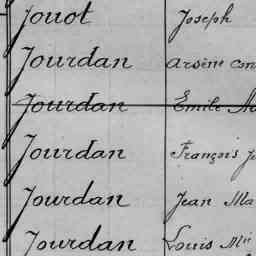 Jouot Joseph
Jourdan Arsène
Jourdan Emile
Jourdan François
Jourdan Jean Ma
Jourdan Louis